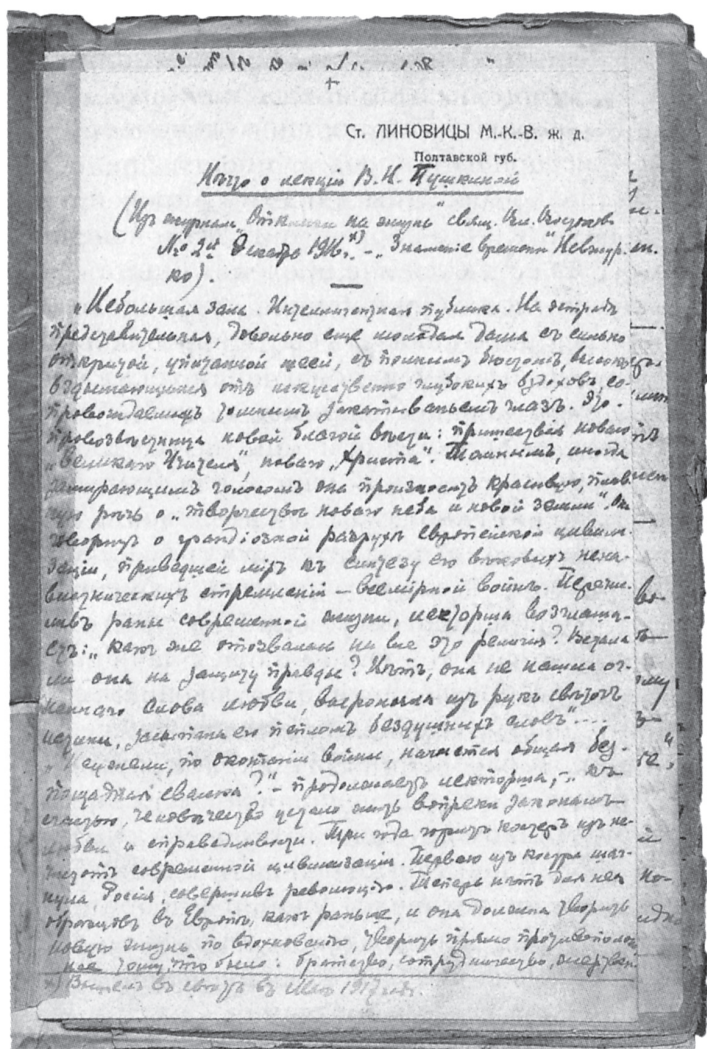 Ст. ЛИНОВИЦЫ М.-К.-В. ж. д.
Полтавской губ.
Нѣчто о лекціи В. И. Пушкиной
(Изъ журнала „Отклики на жизнь“ свящ.
№ 2й Декабрь 1916г. *) – „Знаменіе времени“
ко).
„Небольшая зала. Интеллигентная публика. На эстрадѣ
представительная, довольно еще молодая дама съ сильно
открытой, упитанной шеей, съ пышнымъ бюстомъ, высоко
вздымающимся отъ искусственно глубокихъ вздоховъ, со-
провождаемыхъ томнымъ закатываньемъ глазъ. Это –
провозвѣстница новой благой вѣсти: пришествія новаго
„Великаго Учителя“, новаго „Христа“. Томнымъ, иногда
замирающимъ голосомъ она произноситъ красивую, плав-
ную рѣчь о „творчествѣ новаго неба и новой земли“. Она
говоритъ о грандіозной разрухѣ европейской цивили-
заціи, приведшей міръ къ синтезу его вѣковыхъ нена-
вистническихъ стремленій – всемірной войнѣ. Перечи-
сливъ раны современной жизни, лекторша возглаша-
етъ: „какъ же отозвалась на все это религія? Встала
ли она на защиту правды? Нѣтъ, она не нашла ог-
неннаго слова любви, выронила изъ рукъ свѣточъ
истины, засыпала его пепломъ бездушныхъ словъ“....
„Неужели, по окончаніи войны, начнется общая без-
пощадная свалка?“ – продолжаетъ лекторша, –„къ
счастью, человѣчество устало жить вопреки законамъ
любви и справедливости. Три года горитъ костеръ изъ не-
чистотъ современной цивилизаціи. Первою изъ костра шаг-
нула Россія, совершивъ революцію. Теперь нѣтъ для нея
образцовъ въ Европѣ, какъ раньше, и она должна творить
новую жизнь по вдохновенію, творить прямо противополож
ное тому, что было: братство, сотрудничество,
*) Вышелъ въ свѣтъ въ Маѣ 1917 года.